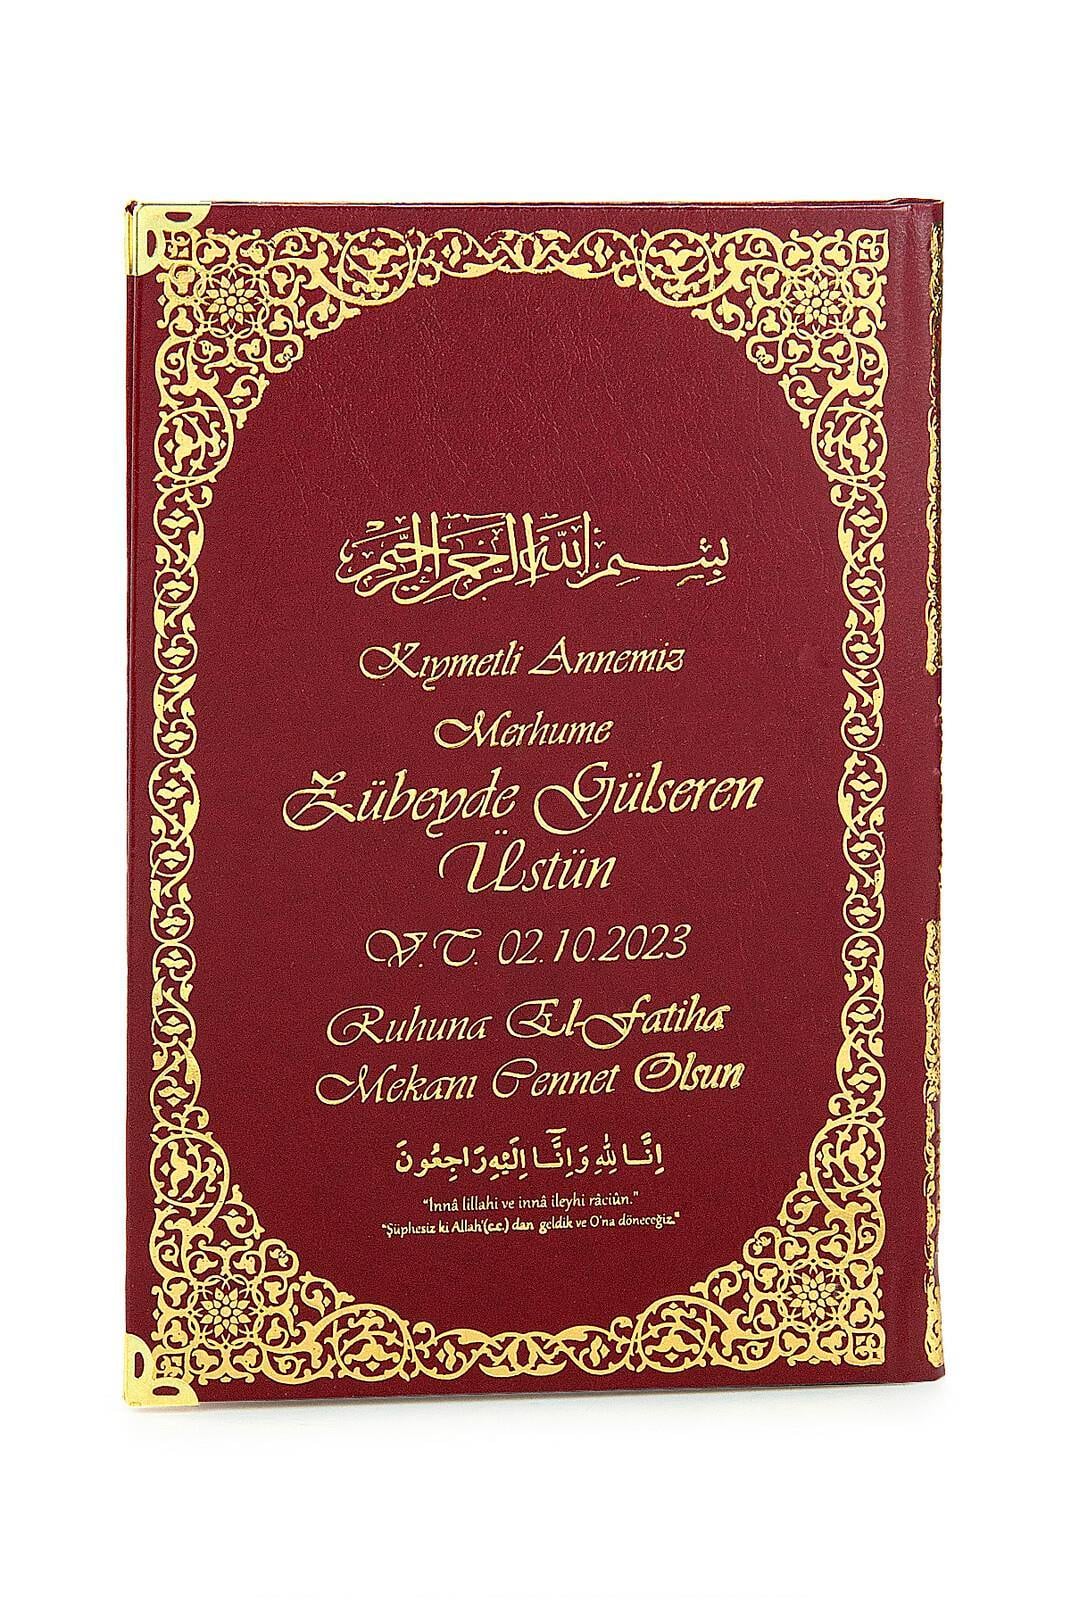 بسم الله الرحمن الرحيم
Kıymetli Annemiz
Merhume
Zübeyde Gülseren
Üstün
V.T. 02.10.2023
Ruhuna El-Fatiha
Mekanı Cennet Olsun
اِنَّا لِلّٰهِ وَاِنَّٓا اِلَيْهِ رَاجِعُونَ
"İnnâ lillahi ve innâ ileyhi râciûn."
"Şüphesiz ki Allah'(c.c.) dan geldik ve O'na döneceğiz."